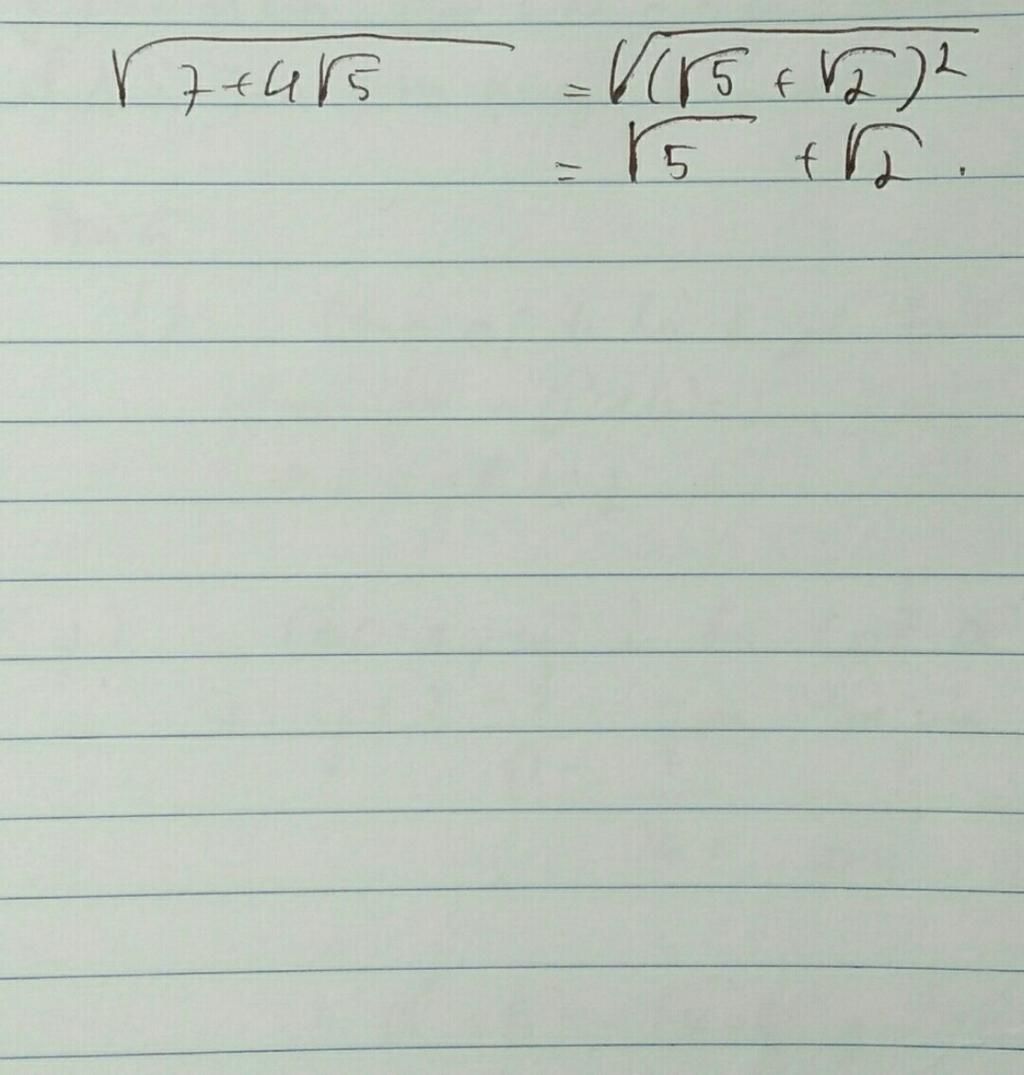 √(7+4√5) = √((√5 + √2)²)
= √5 + √2 .